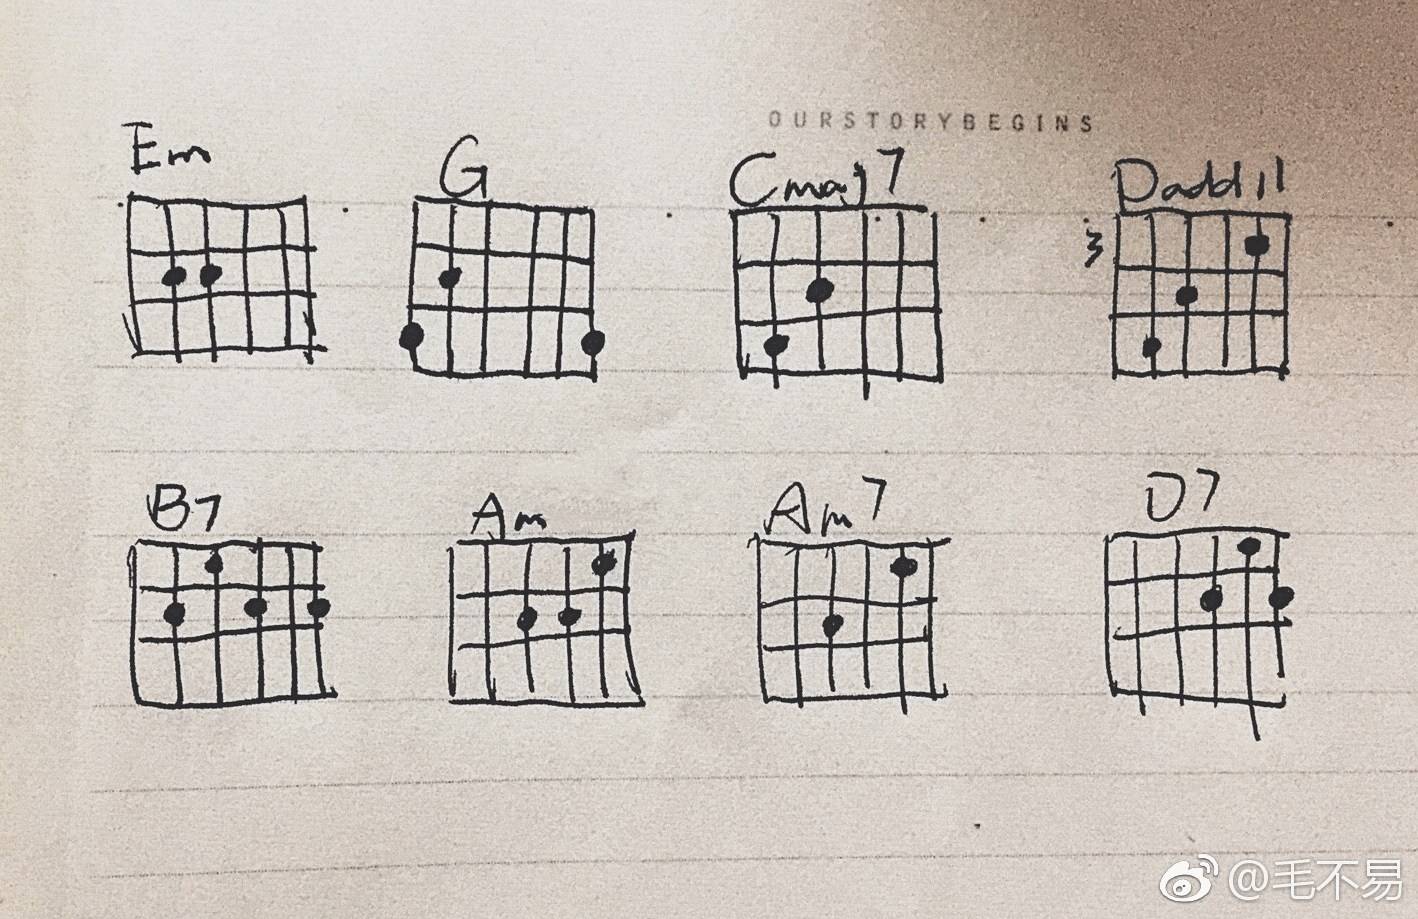 OURSTORYBEGINS
Em G Cmaj7 Dadd11
3
B7 Am Am7 D7
@毛不易